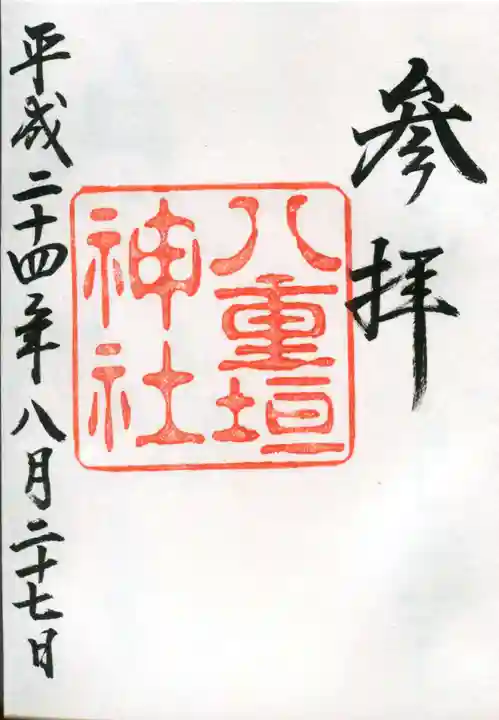 参拝
八重垣
神社
平成二十四年八月二十七日